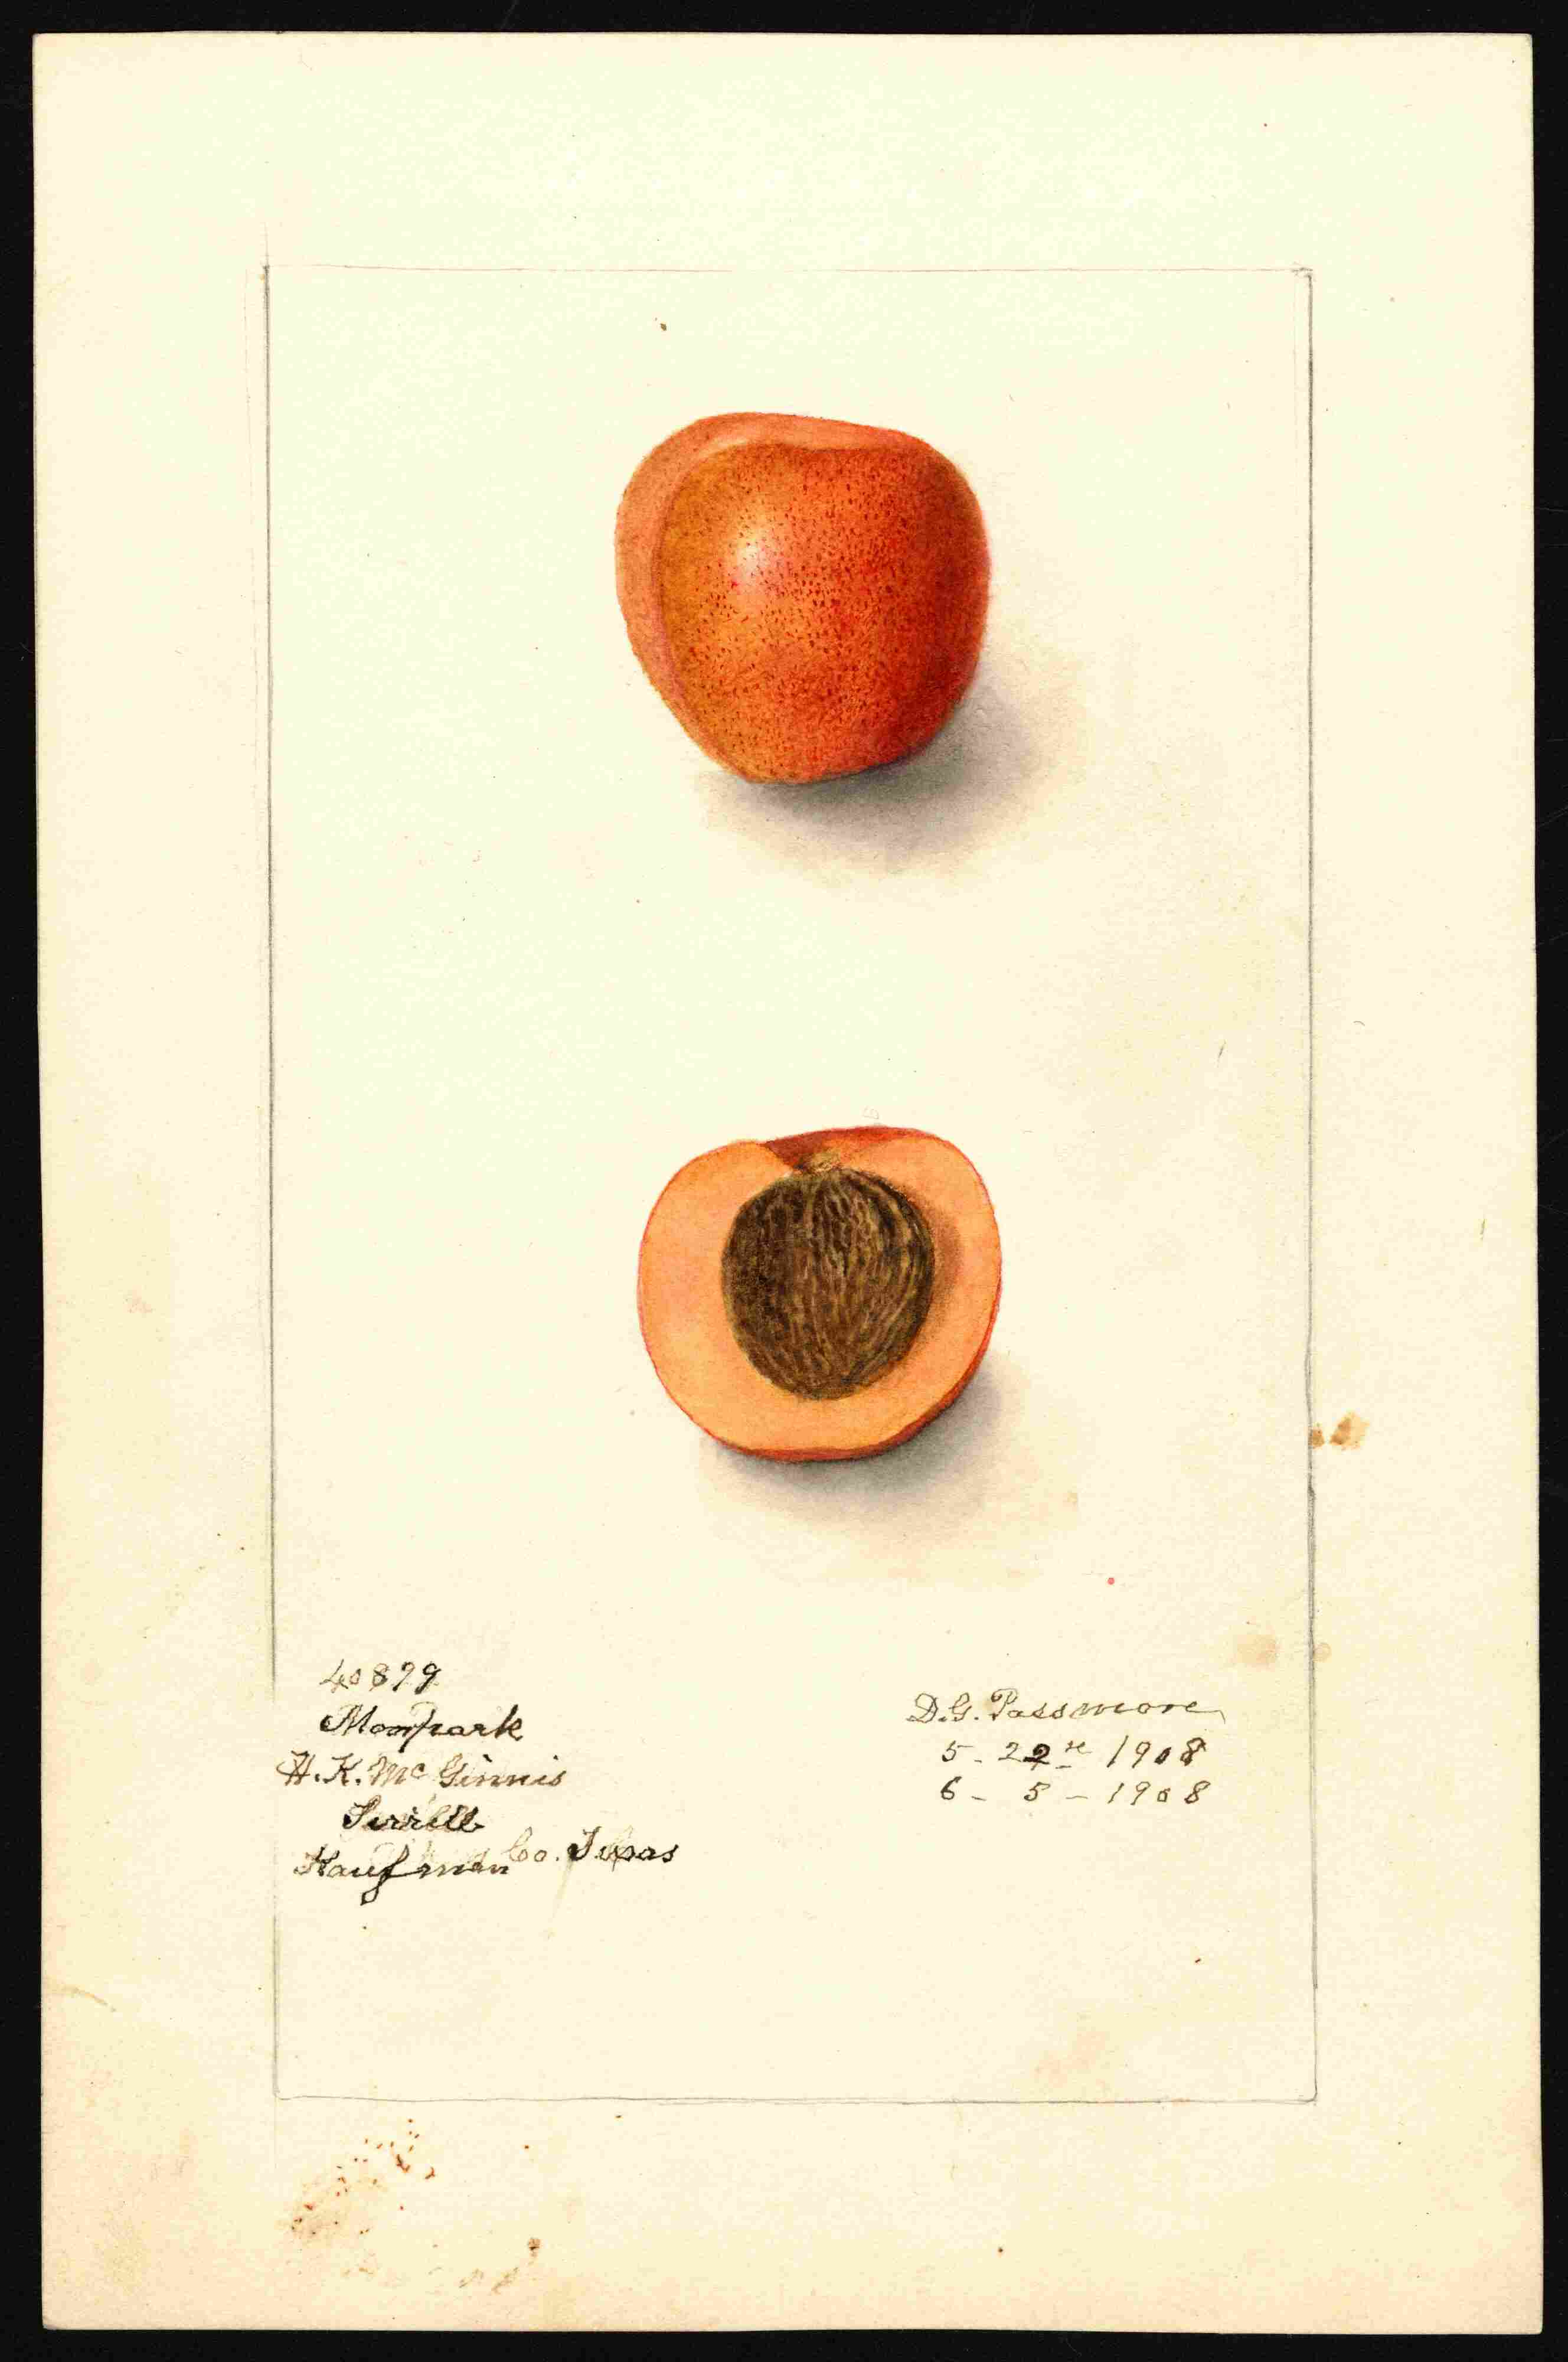 40879
Moorpark
H. K. Mc Ginnis
Terrell
Kaufman Co. Texas
D. G. Passmore
5 - 22 1908
6 - 5 - 1908